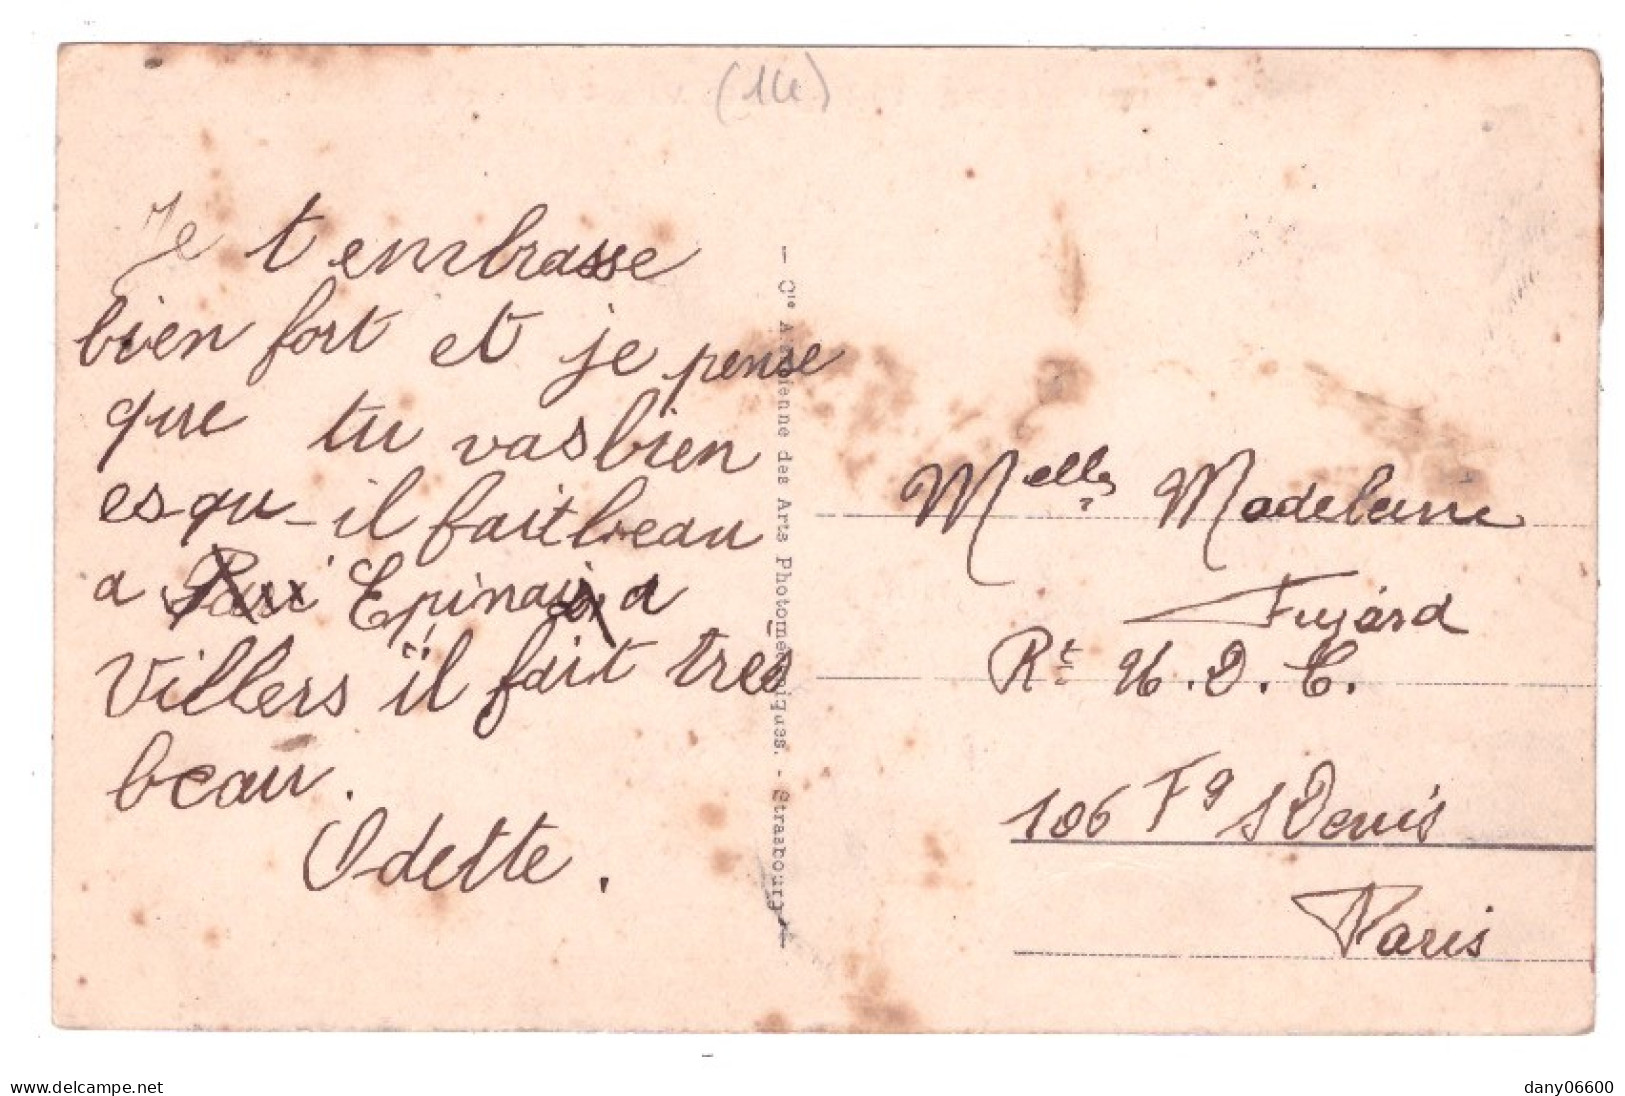 (14)
Je t embrasse
bien fort et je pense
que tu vas bien
es-qu-il fait beau
a Epinai a
Villers il fait tres
beau.
Odette.
— Cie Alsacienne des Arts Photomécaniques. - Strasbourg —
Melle Madeleine
Fujard
Rt U.D.C.
106 Fg s Denis
Paris
www.delcampe.net
dany06600